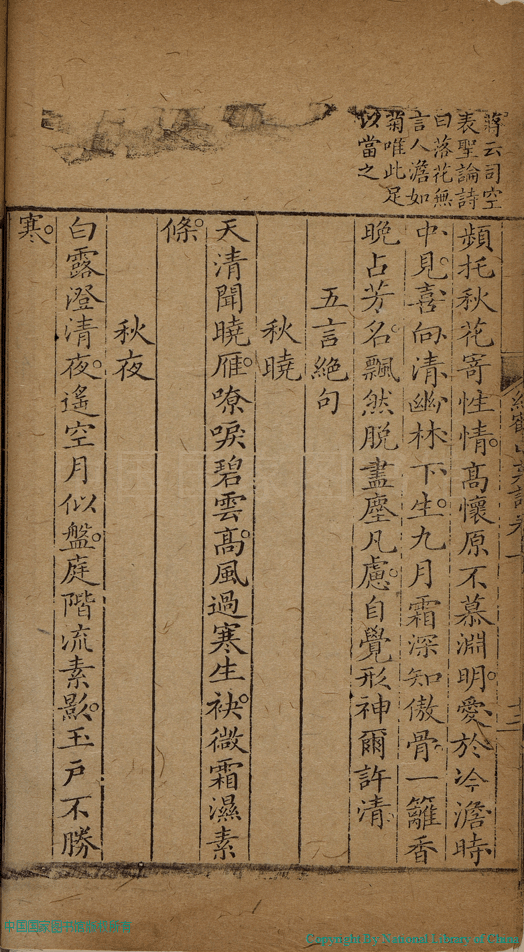 蔣云司空
表聖論詩
曰落花無
言人澹如
菊唯此足
以當之
頻托秋花寄性情高懷原不慕淵明愛於冷澹時
中見喜向清幽林下生九月霜深知傲骨一籬香
晚占芳名飄然脫盡塵凡慮自覺形神爾許清
五言絕句
秋曉
天清聞曉雁嘹唳碧雲高風過寒生袂微霜濕素
條
秋夜
白露澄清夜遙空月似盤庭階流素影玉戶不勝
寒
中国国家图书馆
Copyright By National Library of China